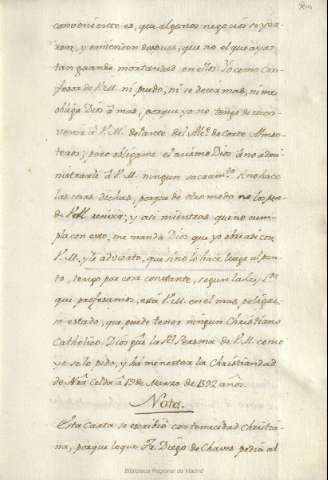 conveniente es, que algunos negocios se yer-
ren, y enmienden despues, que no el que aya
tan grande mortandad en ellos. Yo como con-
fesor de V. M. ni puedo, ni se decir mas, ni me
obliga Dios à mas, porque yo no tengo de recon-
venir à V. M. delante del Alc.e de Corte Almen-
teros; pero obligame el mismo Dios à no admi-
nistrarle à V. M. ningun sacram.to sino hace
las cosas dichas, porque de otro modo no las pue-
de V. M. recivir; y asi mientras que no cum-
pla con esto, me manda Dios que yo obre asi con
V. M. y le advierto, que sino lo hace luego al pun-
to, tengo por cosa constante, segun la Ley S.ta
que profesamos, está V. M. en el mas peligro-
so estado, que puede tener ningun Christiano
Catholico. Dios g.de la R.l Persona de V. M. como
yo se lo pido, y há menester la Christiandad
de N.ra Celda à 19 de Marzo de 1592 años.
Nota.
Esta Carta se escribió con tenacidad Christia-
na, porque lo que Fr. Diego de Chaves pedia al
Biblioteca Regional de Madrid